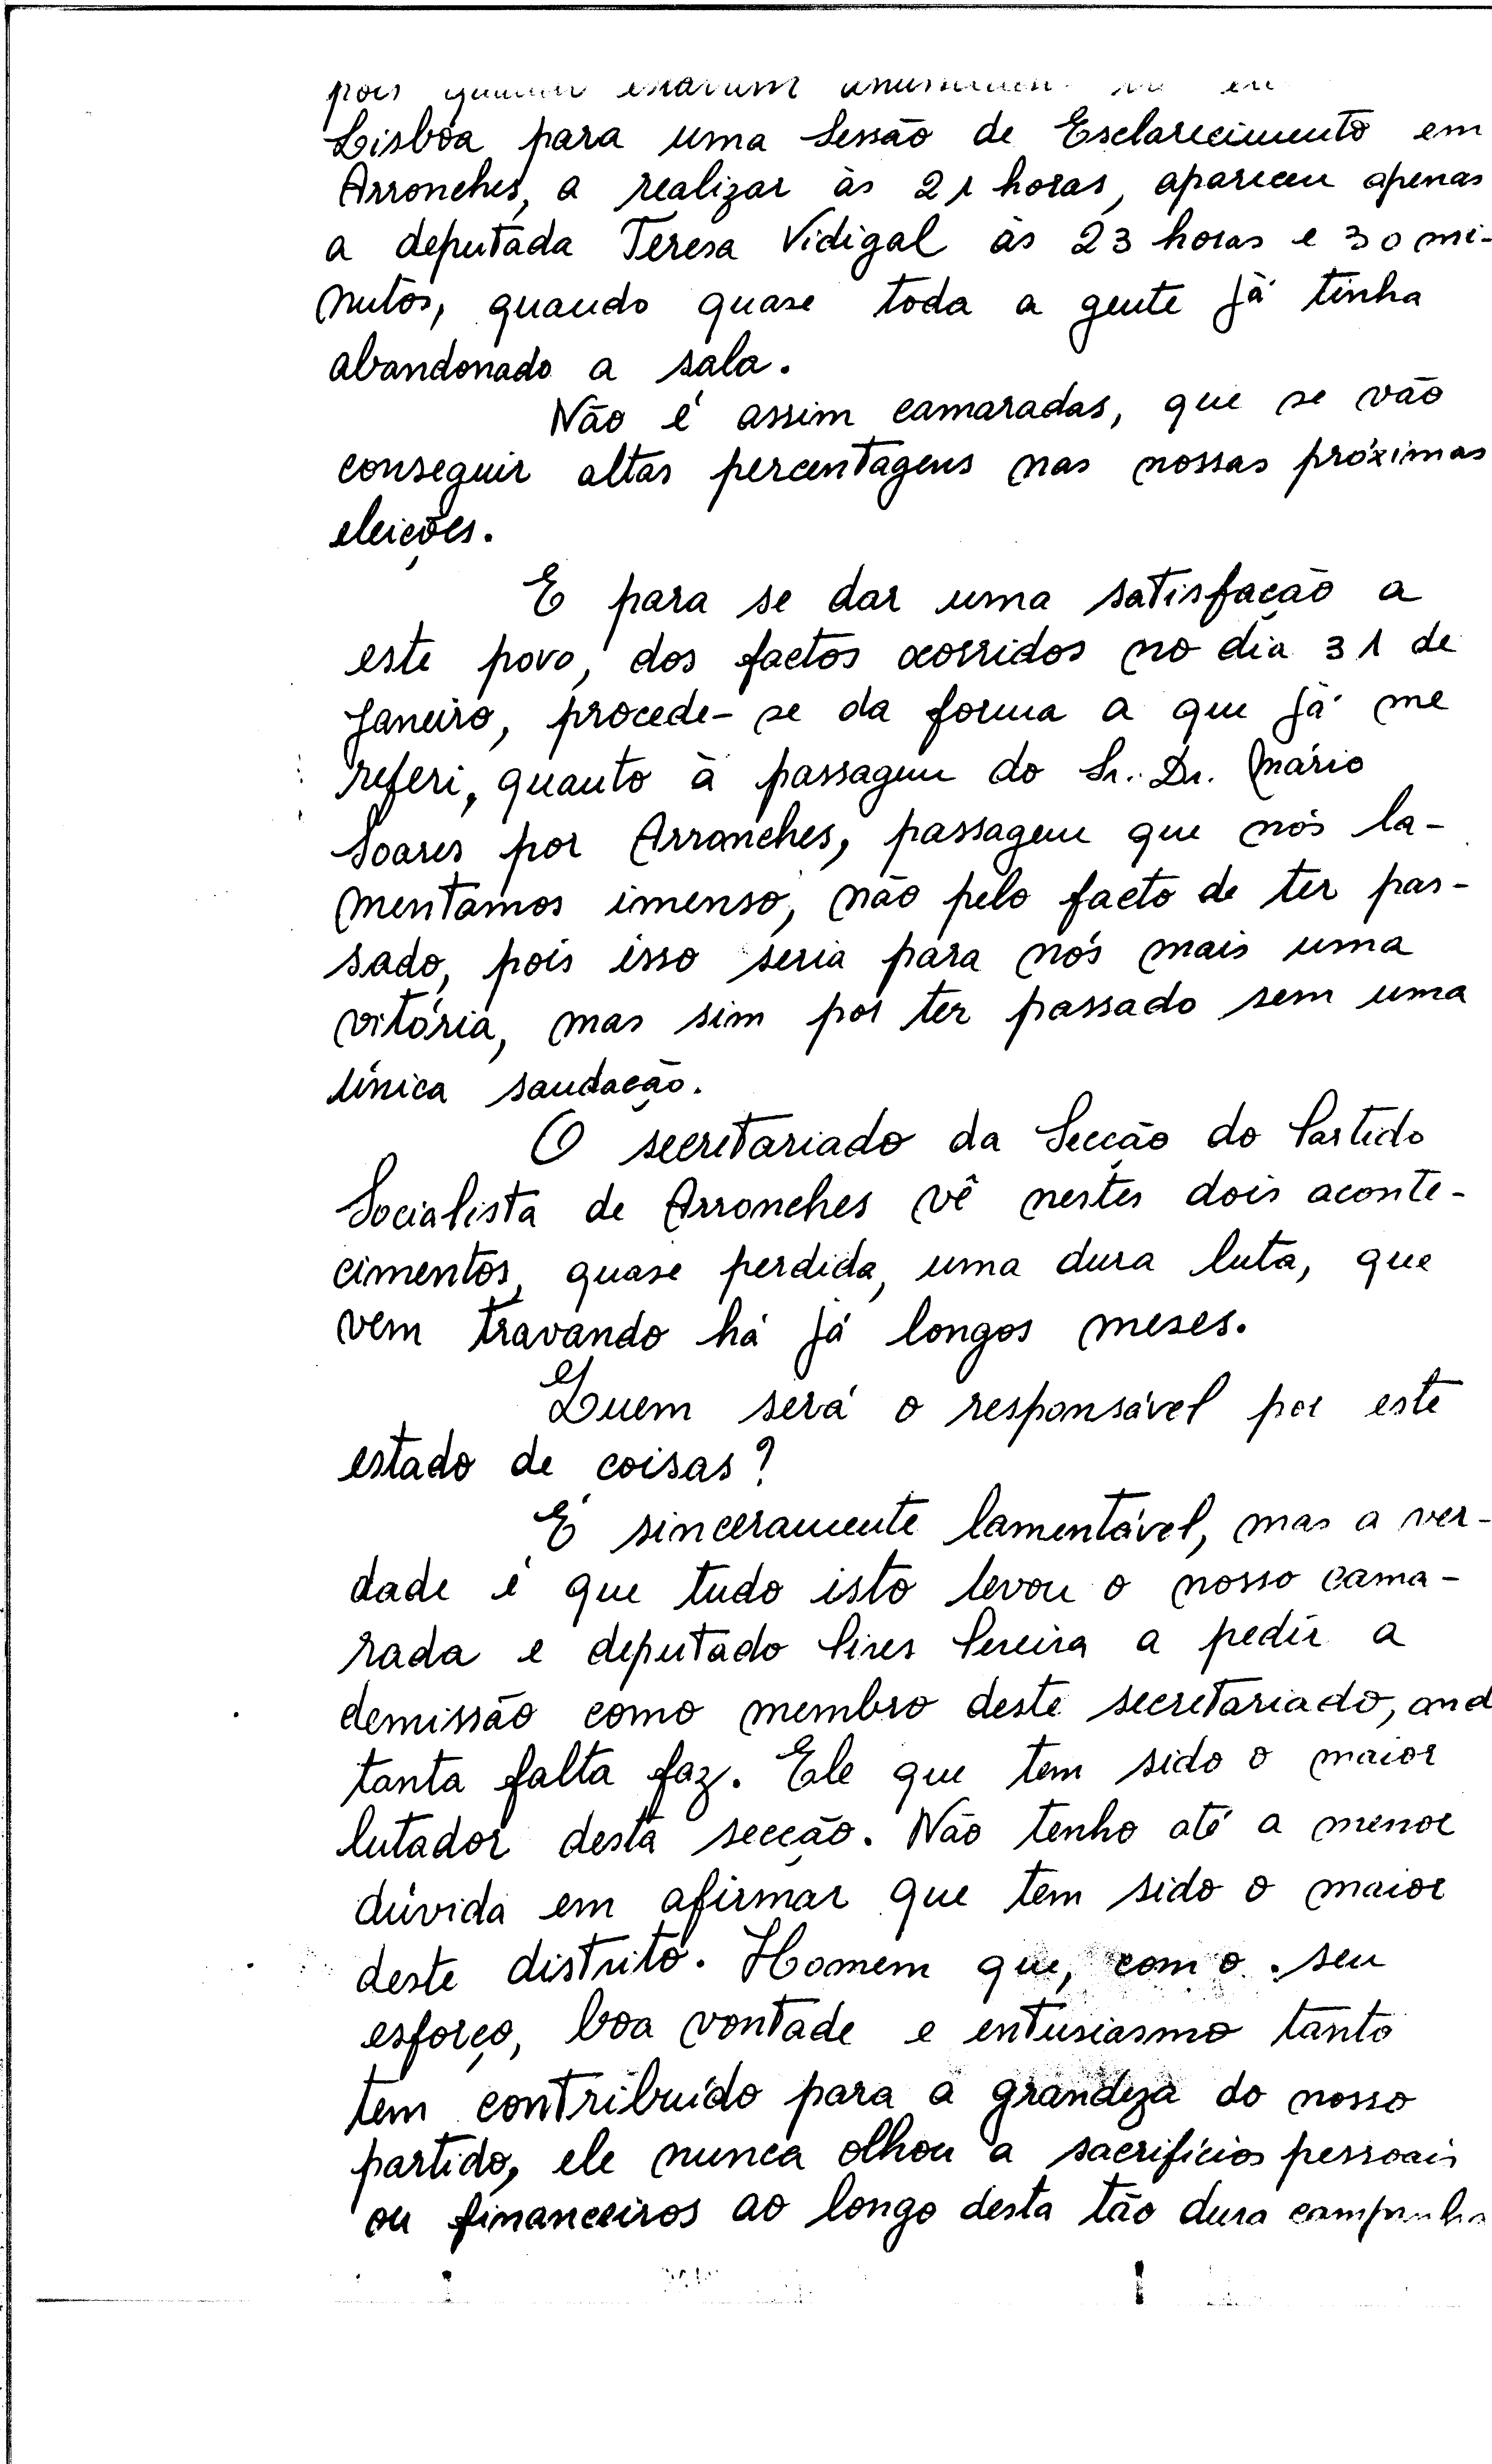 pois quando estavam
Lisboa para uma Sessão de Esclarecimento em
Arronches, a realizar às 21 horas, apareceu apenas
a deputada Teresa Vidigal às 23 horas e 30 mi-
nutos, quando quase toda a gente já tinha
abandonado a sala.
Não é assim camaradas, que se vão
conseguir altas percentagens nas nossas próximas
eleições.
E para se dar uma satisfação a
este povo, dos factos ocorridos no dia 31 de
Janeiro, procede-se da forma a que já me
referi, quanto à passagem do Sr. Dr. Mário
Soares por Arronches, passagem que nós la-
mentamos imenso, não pelo facto de ter pas-
sado, pois isso seria para nós mais uma
vitória, mas sim por ter passado sem uma
única saudação.
O secretariado da Secção do Partido
Socialista de Arronches vê nestes dois aconte-
cimentos, quase perdida, uma dura luta, que
vem travando há já longos meses.
Quem será o responsável por este
estado de coisas?
É sinceramente lamentável, mas a ver-
dade é que tudo isto levou o nosso cama-
rada e deputado Pires Pereira a pedir a
demissão como membro deste secretariado, and
tanta falta faz. Ele que tem sido o maior
lutador desta secção. Não tenho até a menor
dúvida em afirmar que tem sido o maior
deste distrito. Homem que, com o seu
esforço, boa vontade e entusiasmo tanto
tem contribuído para a grandeza do nosso
partido, ele nunca olhou a sacrifícios pessoais
ou financeiros ao longo desta tão dura campanha